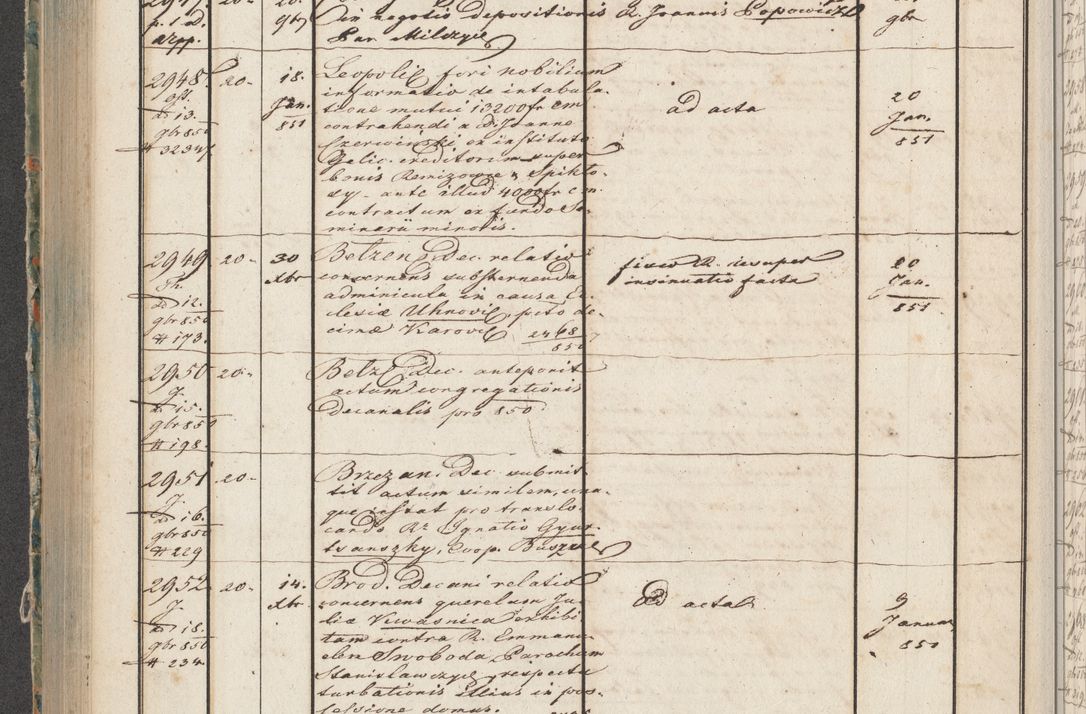 in negotio depositionis R. Joannis Popowicz
Par. Milczyc
2948 20- 18. Jan. 851
ad 13.
9br 850
# 3234
Leopoli fori nobilium
informatio de intabula-
tione mutui 13200 fr cm
contrahendi a D. Joanne
Czerwinski, ex instituto
Galic. creditorum super
bonis Remizowce &
ante illud 4000 fr cm.
contractum ex fundo Se-
minarii minoris.
ad acta
20
Jan.
851
2949 20- 30 Xbr
ad 12.
9br 850
# 173.
Belzen. Dec. relatio
concernens substernenda
adminicula in causa Ec-
lesiæ Uhnovi, pcto de-
cimæ Karovi 2468/850
fisco R. desuper
insinuatio facta
20
Jan.
851
2950 20-
J.
ad 15.
9br 850
# 198.
Belz. Dec. anteponit
actum congregationis
decanalis pro 850
2951 20-
J.
ad 16.
9br 850
# 229
Brzezan. Dec. submit-
tit actum similem, una-
que instat pro translo-
cando R. Ignatio Gyur-
tsanszky, Coop. Buszcze
2952 20- 14. Xbr
J.
ad 18.
9br 850
# 234
Brod. Decani relatio
concernens querelam Ju-
liæ Kwasnica exhibi-
tam contra R. Emmanu-
elem Swoboda, Parochum
Stanislawczyc, respectu
turbationis illius in pos-
sessione domus.
ad acta
9
Januar
851